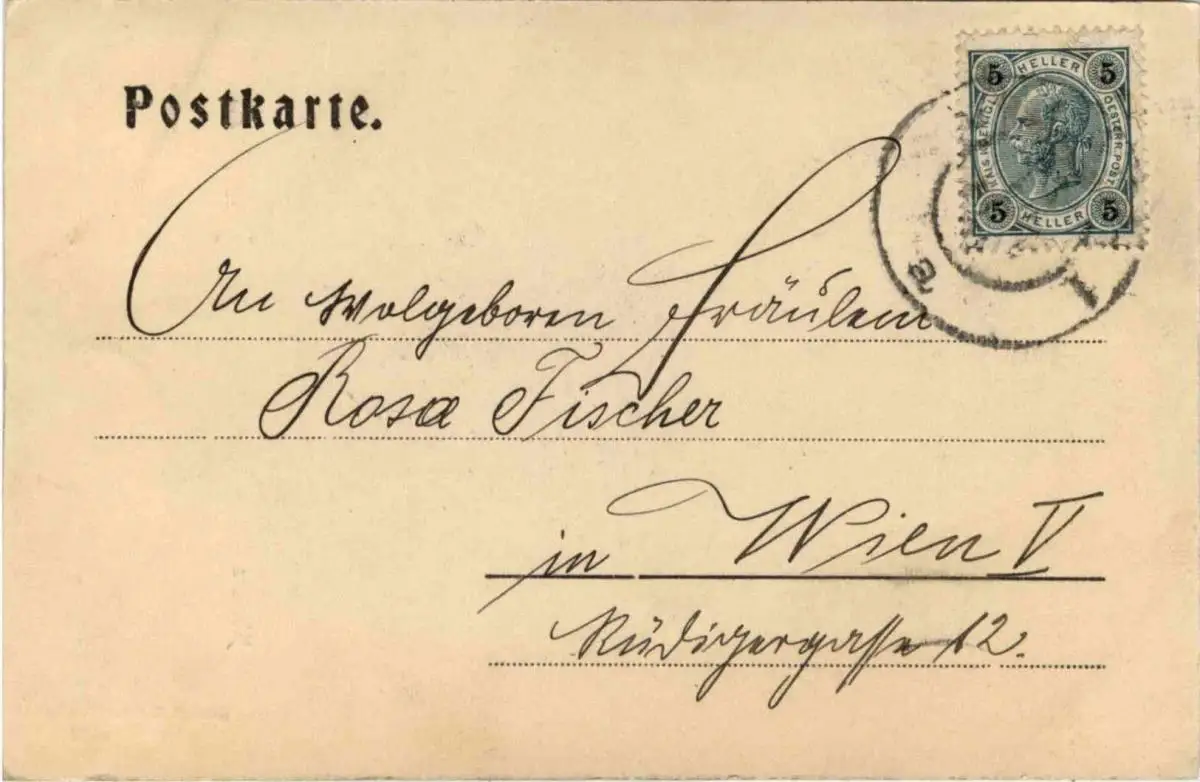 Postkarte.
5 HELLER 5
KAIS. KOENIGL. OESTERR. POST.
5 HELLER 5
An Wolgeboren Fräulein
Rosa Fischer
in Wien V
Rüdigergasse 12.